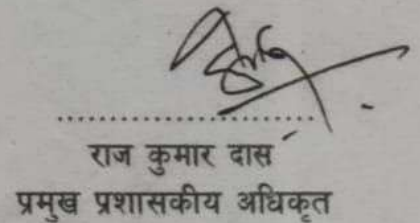 ........................................
राज कुमार दास
प्रमुख प्रशासकीय अधिकृत